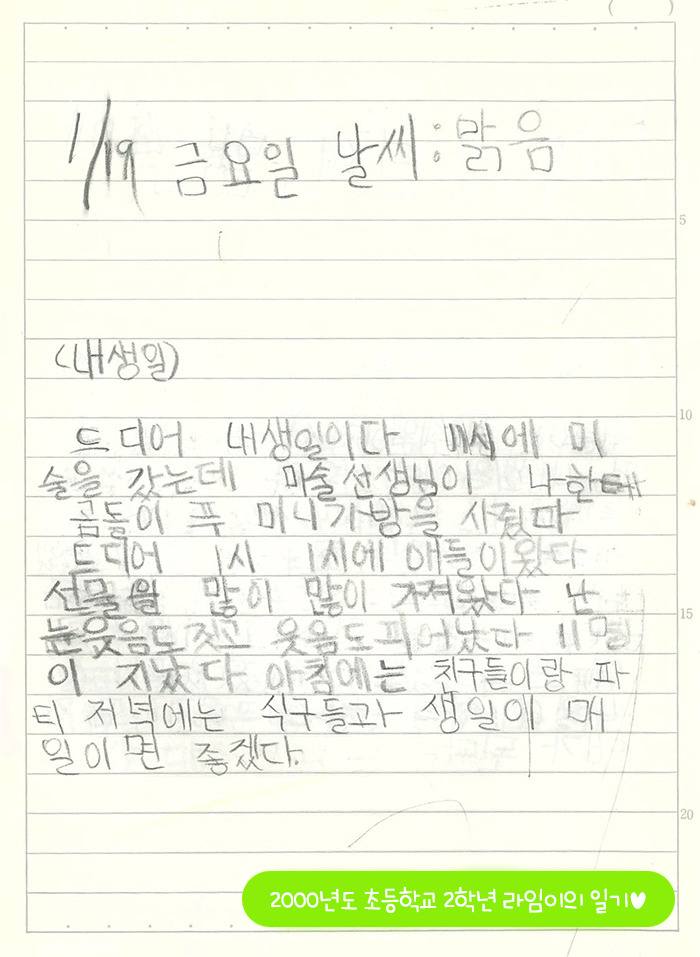 1/19 금요일 날씨:맑음
5
(내생일)
10
드디어 내생일이다 11시에 미
술을 갔는데 미술선생님이 나한테
곰돌이 푸 미니가방을 사줬다
드디어 1시 1시에 애들이왔다
선물을 많이 많이 가져왔다 난
눈웃음도짓고 웃음도피어났다 11명
15
이 지났다 아침에는 친구들이랑 파
티 저녁에는 식구들과 생일이 매
일이면 좋겠다.
20
2000년도 초등학교 2학년 라임이의 일기♥